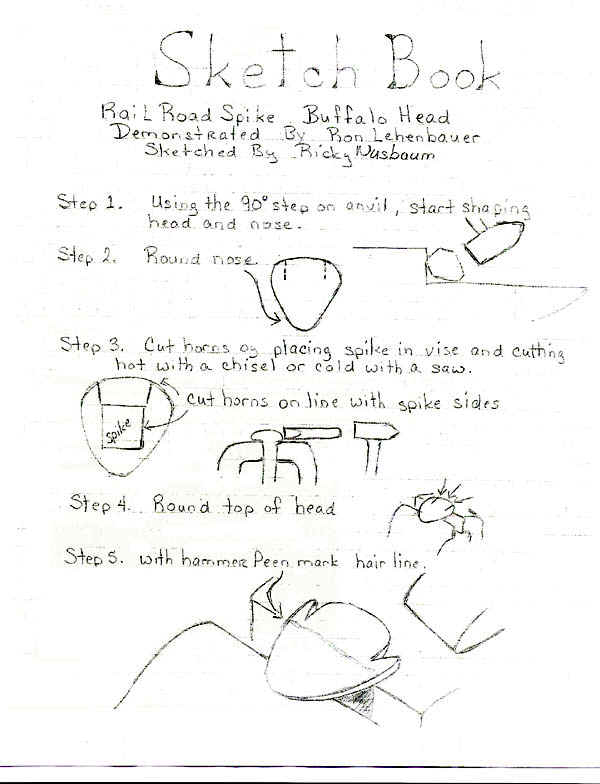 Sketch Book
RaiL Road Spike Buffalo Head
Demonstrated By Ron Lehenbauer
Sketched By Ricky Nusbaum
Step 1. Using the 90° step on anvil, start shaping
head and nose.
Step 2. Round nose
Step 3. Cut horns by placing spike in vise and cutting
hot with a chisel or cold with a saw.
cut horns on line with spike sides
spike
Step 4. Round top of head
Step 5. with hammer Peen mark hair line.